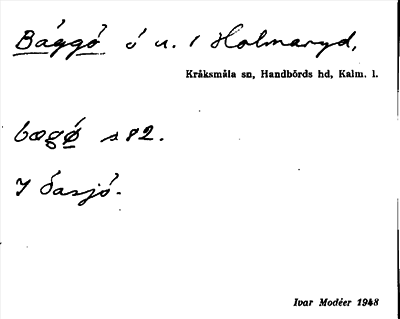 Bǻggö́ ö́ u. / Holmaryd,
Kråksmåla sn, Handbörds hd, Kalm. l.
bægǿ s 82.
I Åasjö.
Ivar Modéer 1948